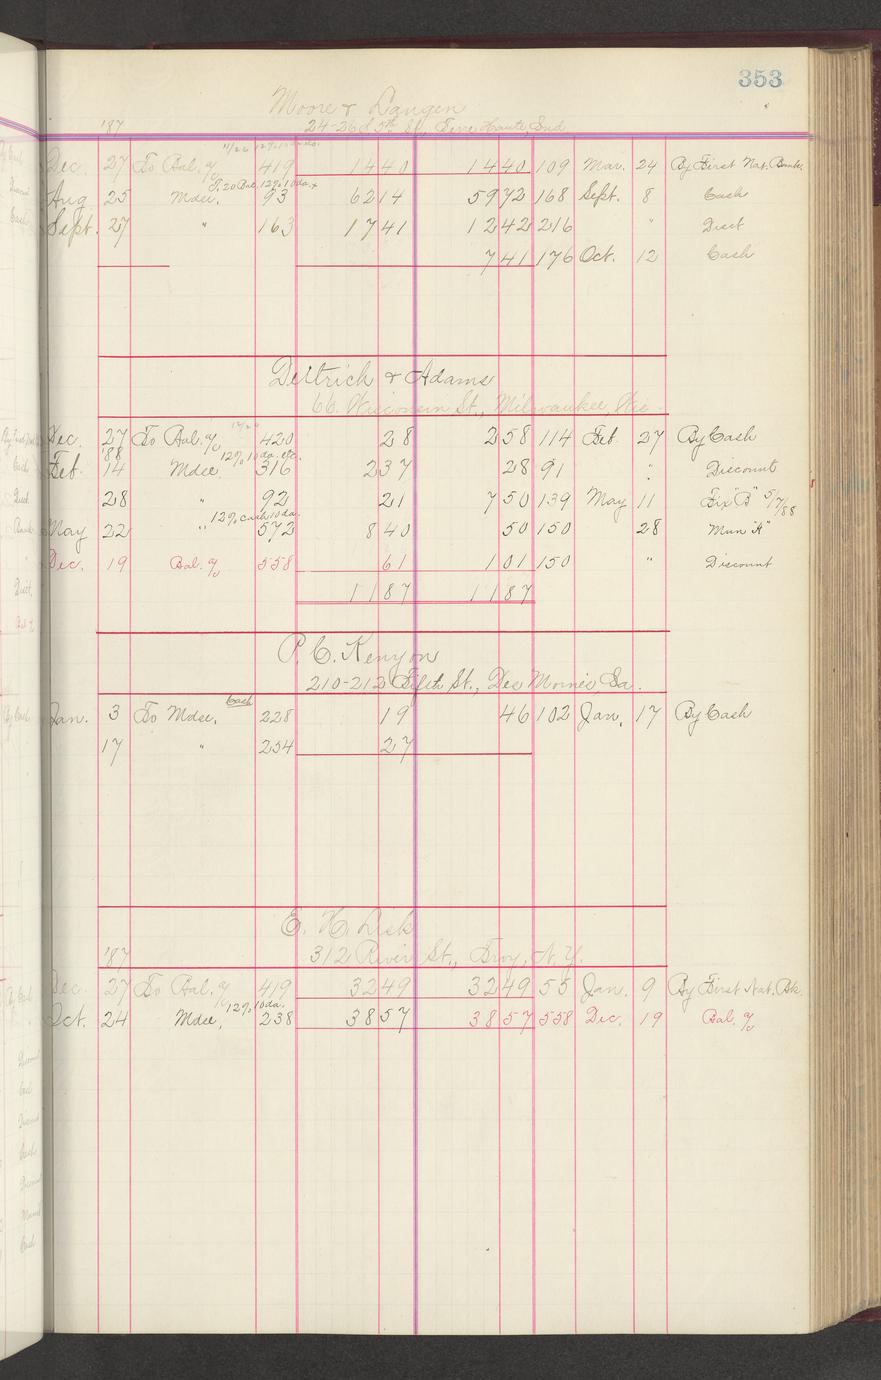 353
Moore & Langen
'87 24-26 S 5th St., Terre Haute, Ind
11/26 12% 10 da.
Dec. 27 To Bal. % 419 1440 1440 109 Mar. 24 By First Nat. Bank
12% 10 da.
Aug. 25 Mdse. 93 6214 5972 168 Sept. 8 Cash
Sept. 27 " 163 1741 1242 216 " Disct
741 176 Oct. 12 Cash
Dettrich & Adams
66 Wisconsin St., Milwaukee, Wis.
Dec. 27 To Bal. % 420 28 258 114 Feb. 27 By Cash
'88 12% 10 da. etc.
Feb. 14 Mdse 316 237 28 91 " Discount
28 " 92 21 750 139 May 11 Fix "B" 5/7/88
12% cash 10 da.
May 22 " 572 840 50 150 28 Mun "A"
Dec. 19 Bal. % 558 61 101 150 " Discount
1187 1187
P. C. Kenyon
210-212 Fifth St., Des Moines Ia.
Cash
Jan. 3 To Mdse. 228 19 46 102 Jan. 17 By Cash
17 " 254 27
E. H. Lisk
'87 312 River St., Troy, N.Y.
Dec. 27 To Bal. % 419 3249 3249 55 Jan. 9 By First Nat. Bk.
12% 10 da.
Oct. 24 Mdse, 238 3857 3857 558 Dec. 19 Bal. %